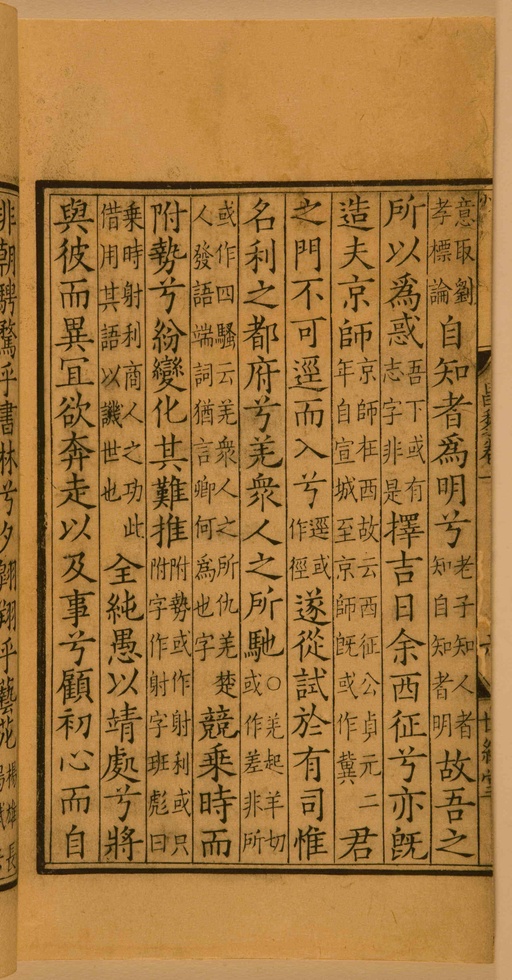 意取劉孝標論自知者爲明兮老子知人者知自知者明故吾之
所以爲惑吾下或有志字非是擇吉日余西征兮亦旣
造夫京師京師在西故云西征公貞元二年自宣城至京師旣或作冀君
之門不可逕而入兮逕或作徑遂從試於有司惟
名利之都府兮羌衆人之所馳○羌起羊切或作差非所
或作四騷云羌衆人之所仇羌楚人發語端詞猶言卿何爲也字競乘時而
附勢兮紛變化其難推附勢或作射利或只附字作射字班彪曰
乘時射利商人之功此借用其語以譏世也全純愚以靖處兮將
與彼而異冝欲奔走以及事兮顧初心而自
非朝騁騖乎書林兮夕翺翔乎藝苑揚雄長